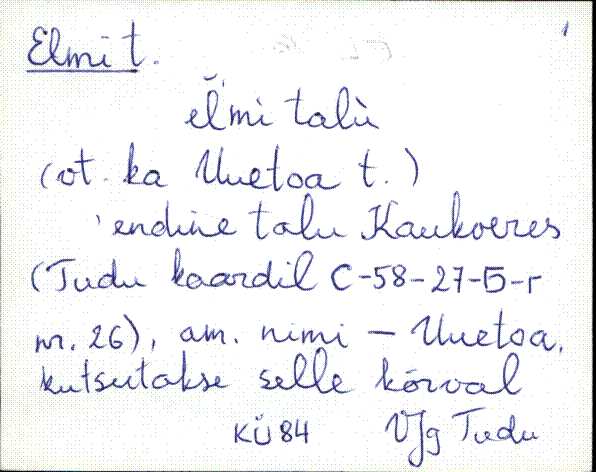 Elmi t.
el̆'mi talù
(vt. ka Uuetoa t.)
'endine talu Kaukveres
(Tudu kaardil C-58-27-Б-г
nr. 26), am. nimi – Uuetoa,
kutsutakse selle kõrval
KÜ 84 VJg Tudu